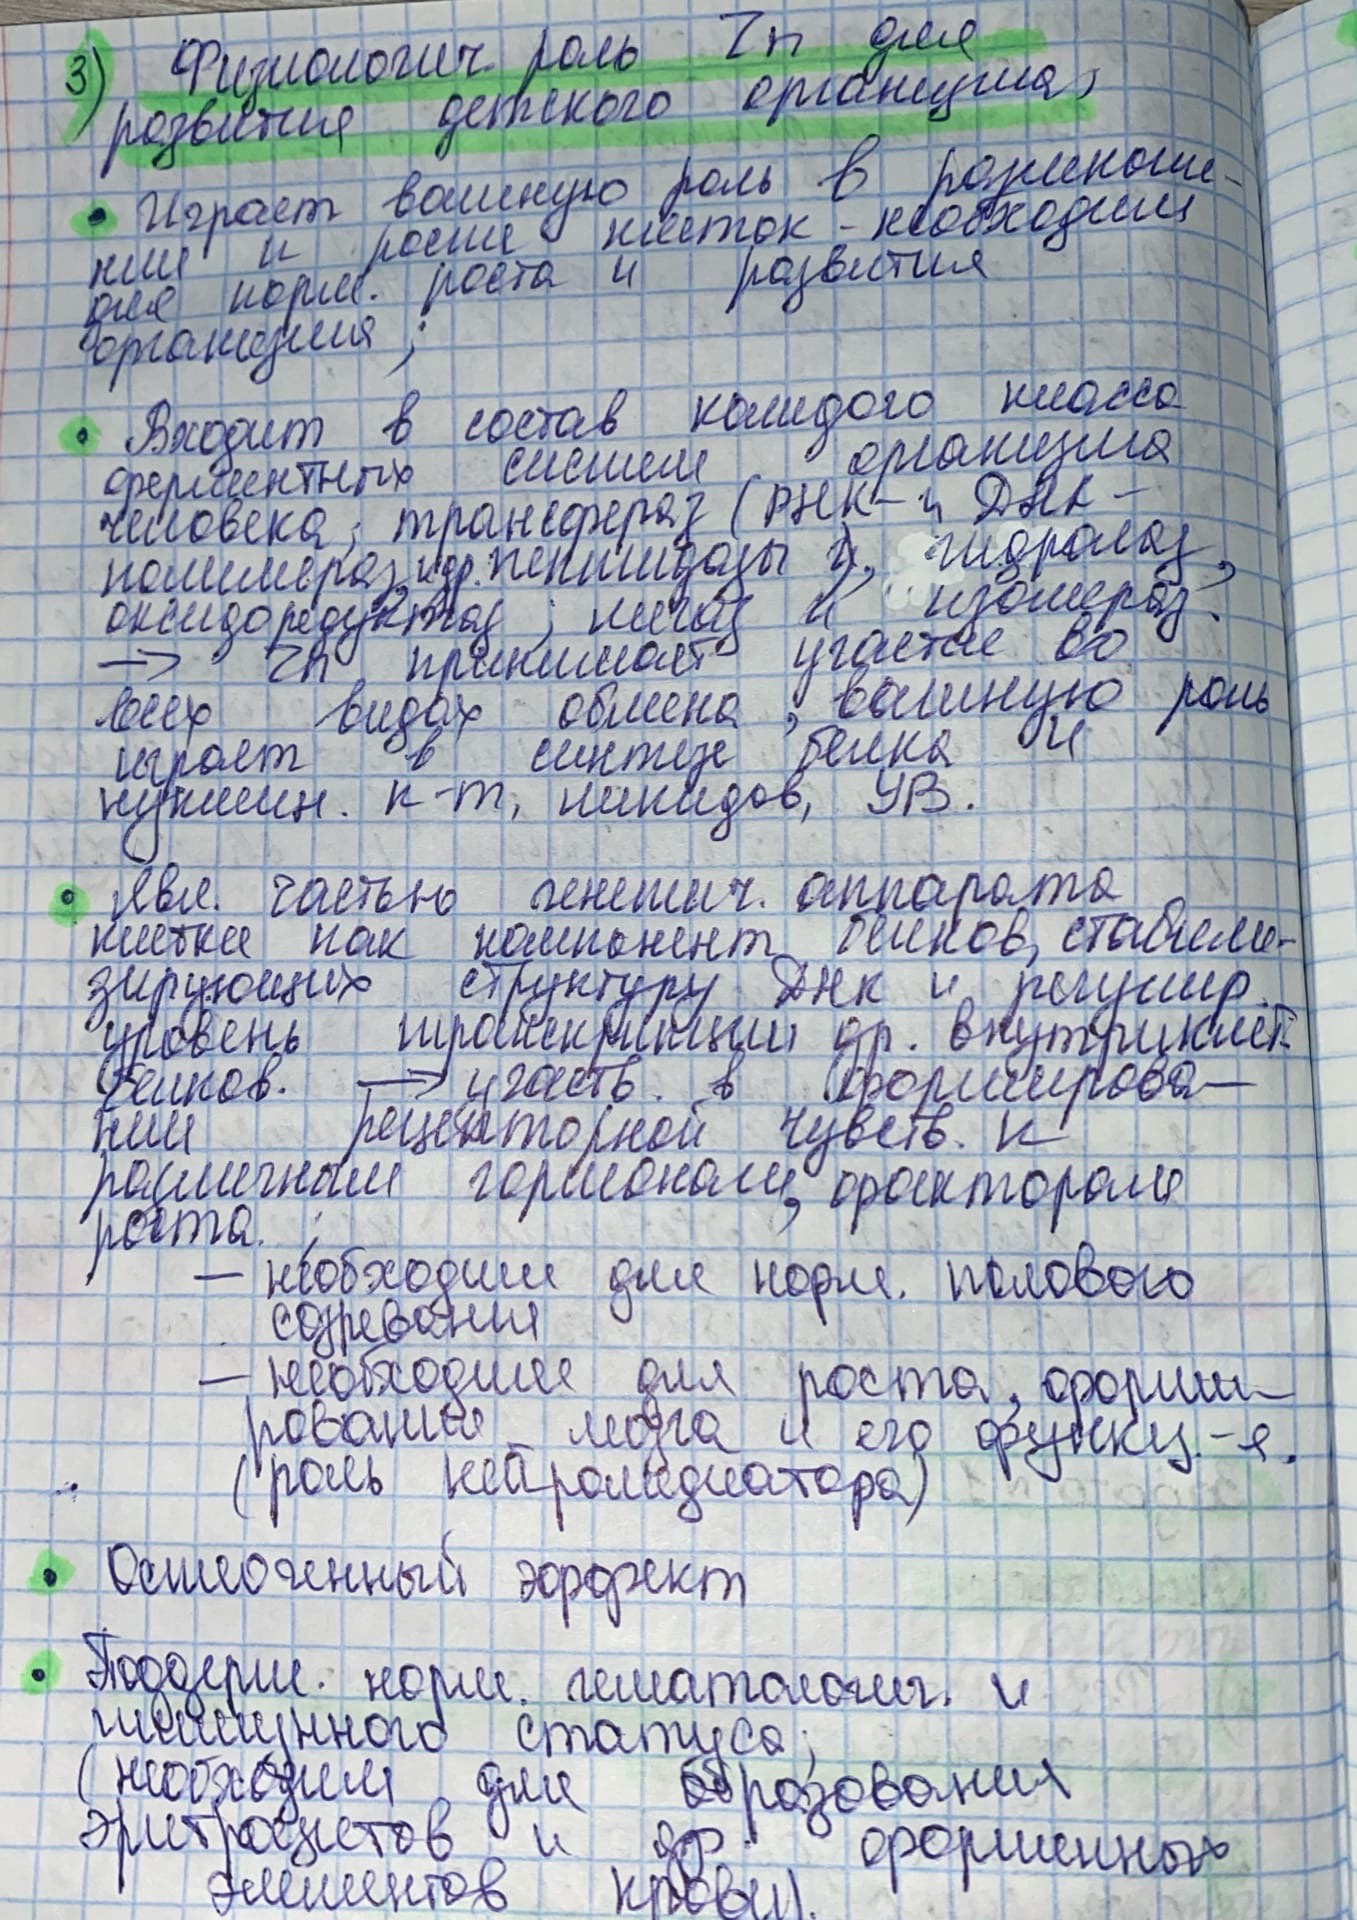 3) Физиологич. роль Zn для
развития детского организма,
• Играет важную роль в размноже-
нии и росте клеток - необходим
для норм. роста и развития
организма;
• Входит в состав каждого класса
ферментных систем организма
человека; трансфераз (РНК- и ДНК-
полимераз, и др. пептидазы), гидролаз,
оксидоредуктаз; лигаз и изомераз.
→ Zn принимает участие во
всех видах обмена, важную роль
играет в синтезе белка и
нуклеин. к-т, липидов, УВ.
• Явл. частью генетич. аппарата
клетки как компонент белков, стабили-
зирующих структуру ДНК и регулир.
уровень транскрипции др. внутриклет.
белков. → участв. в формирова-
нии рецепторной чувств. к
различным гормонам, факторам
роста.
— необходим для норм. полового
созревания
— необходим для роста, форми-
рования мозга и его функц.-я.
(роль нейромедиатора)
• Остеогенный эффект
• Поддерж. норм. гематологич. и
иммунного статуса;
(необходим для образования
эритроцитов и др. форменных
элементов крови).